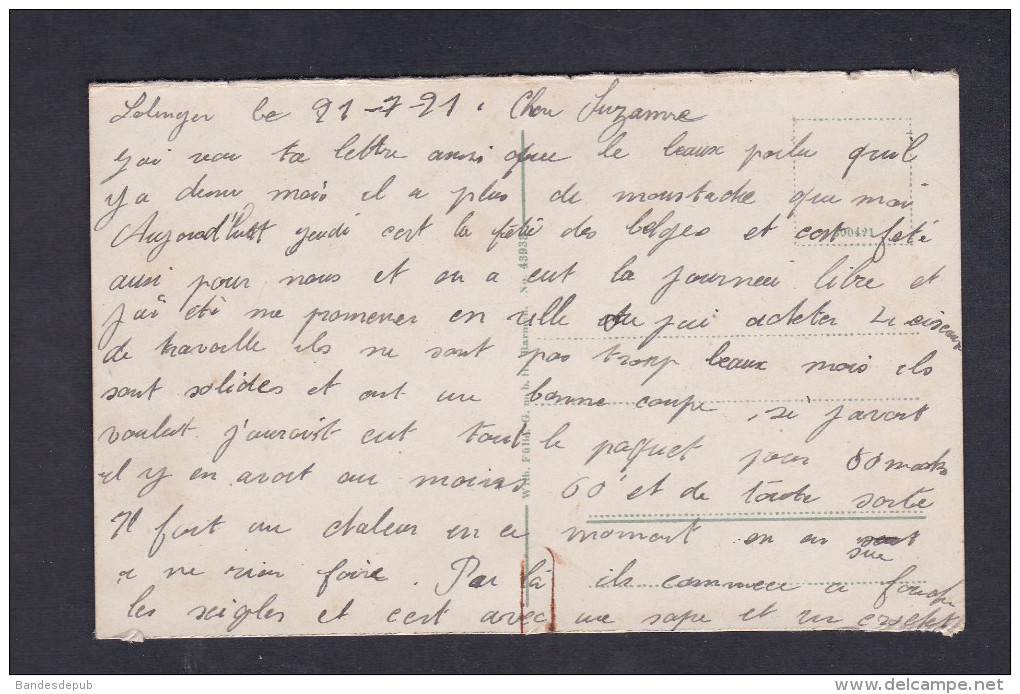 Solinger le 21-7-21. Chere Suzanne
j'ai reçu ta lettre aussi que le beaux poilu quil
y a denu mais il a plus de moustache que moi
Aujourd'hui jeudi cest la fêtè des belges et cest fété
aussi pour nous et on a eut la journeii libre et
j'ai étè me promener en ville j'ai acheter 2 ciseaux
de travaille ils ne sont pas troop beaux mais ils
sont solides et ont une bonne coupe, si j'avait
voulut j'auraist eut tout le paquet pour 60 marks
il y en avait au moins 60 et de toute sorte
Il fait une chaleur en ce moment on en sue
a ne rien faire. Par là ils commece a fauche
les seigles et cest avec une sape et un crochet
300421
Wilh. Fülle G. m. b. H. Barmen. No. 43938
Bandesdepub